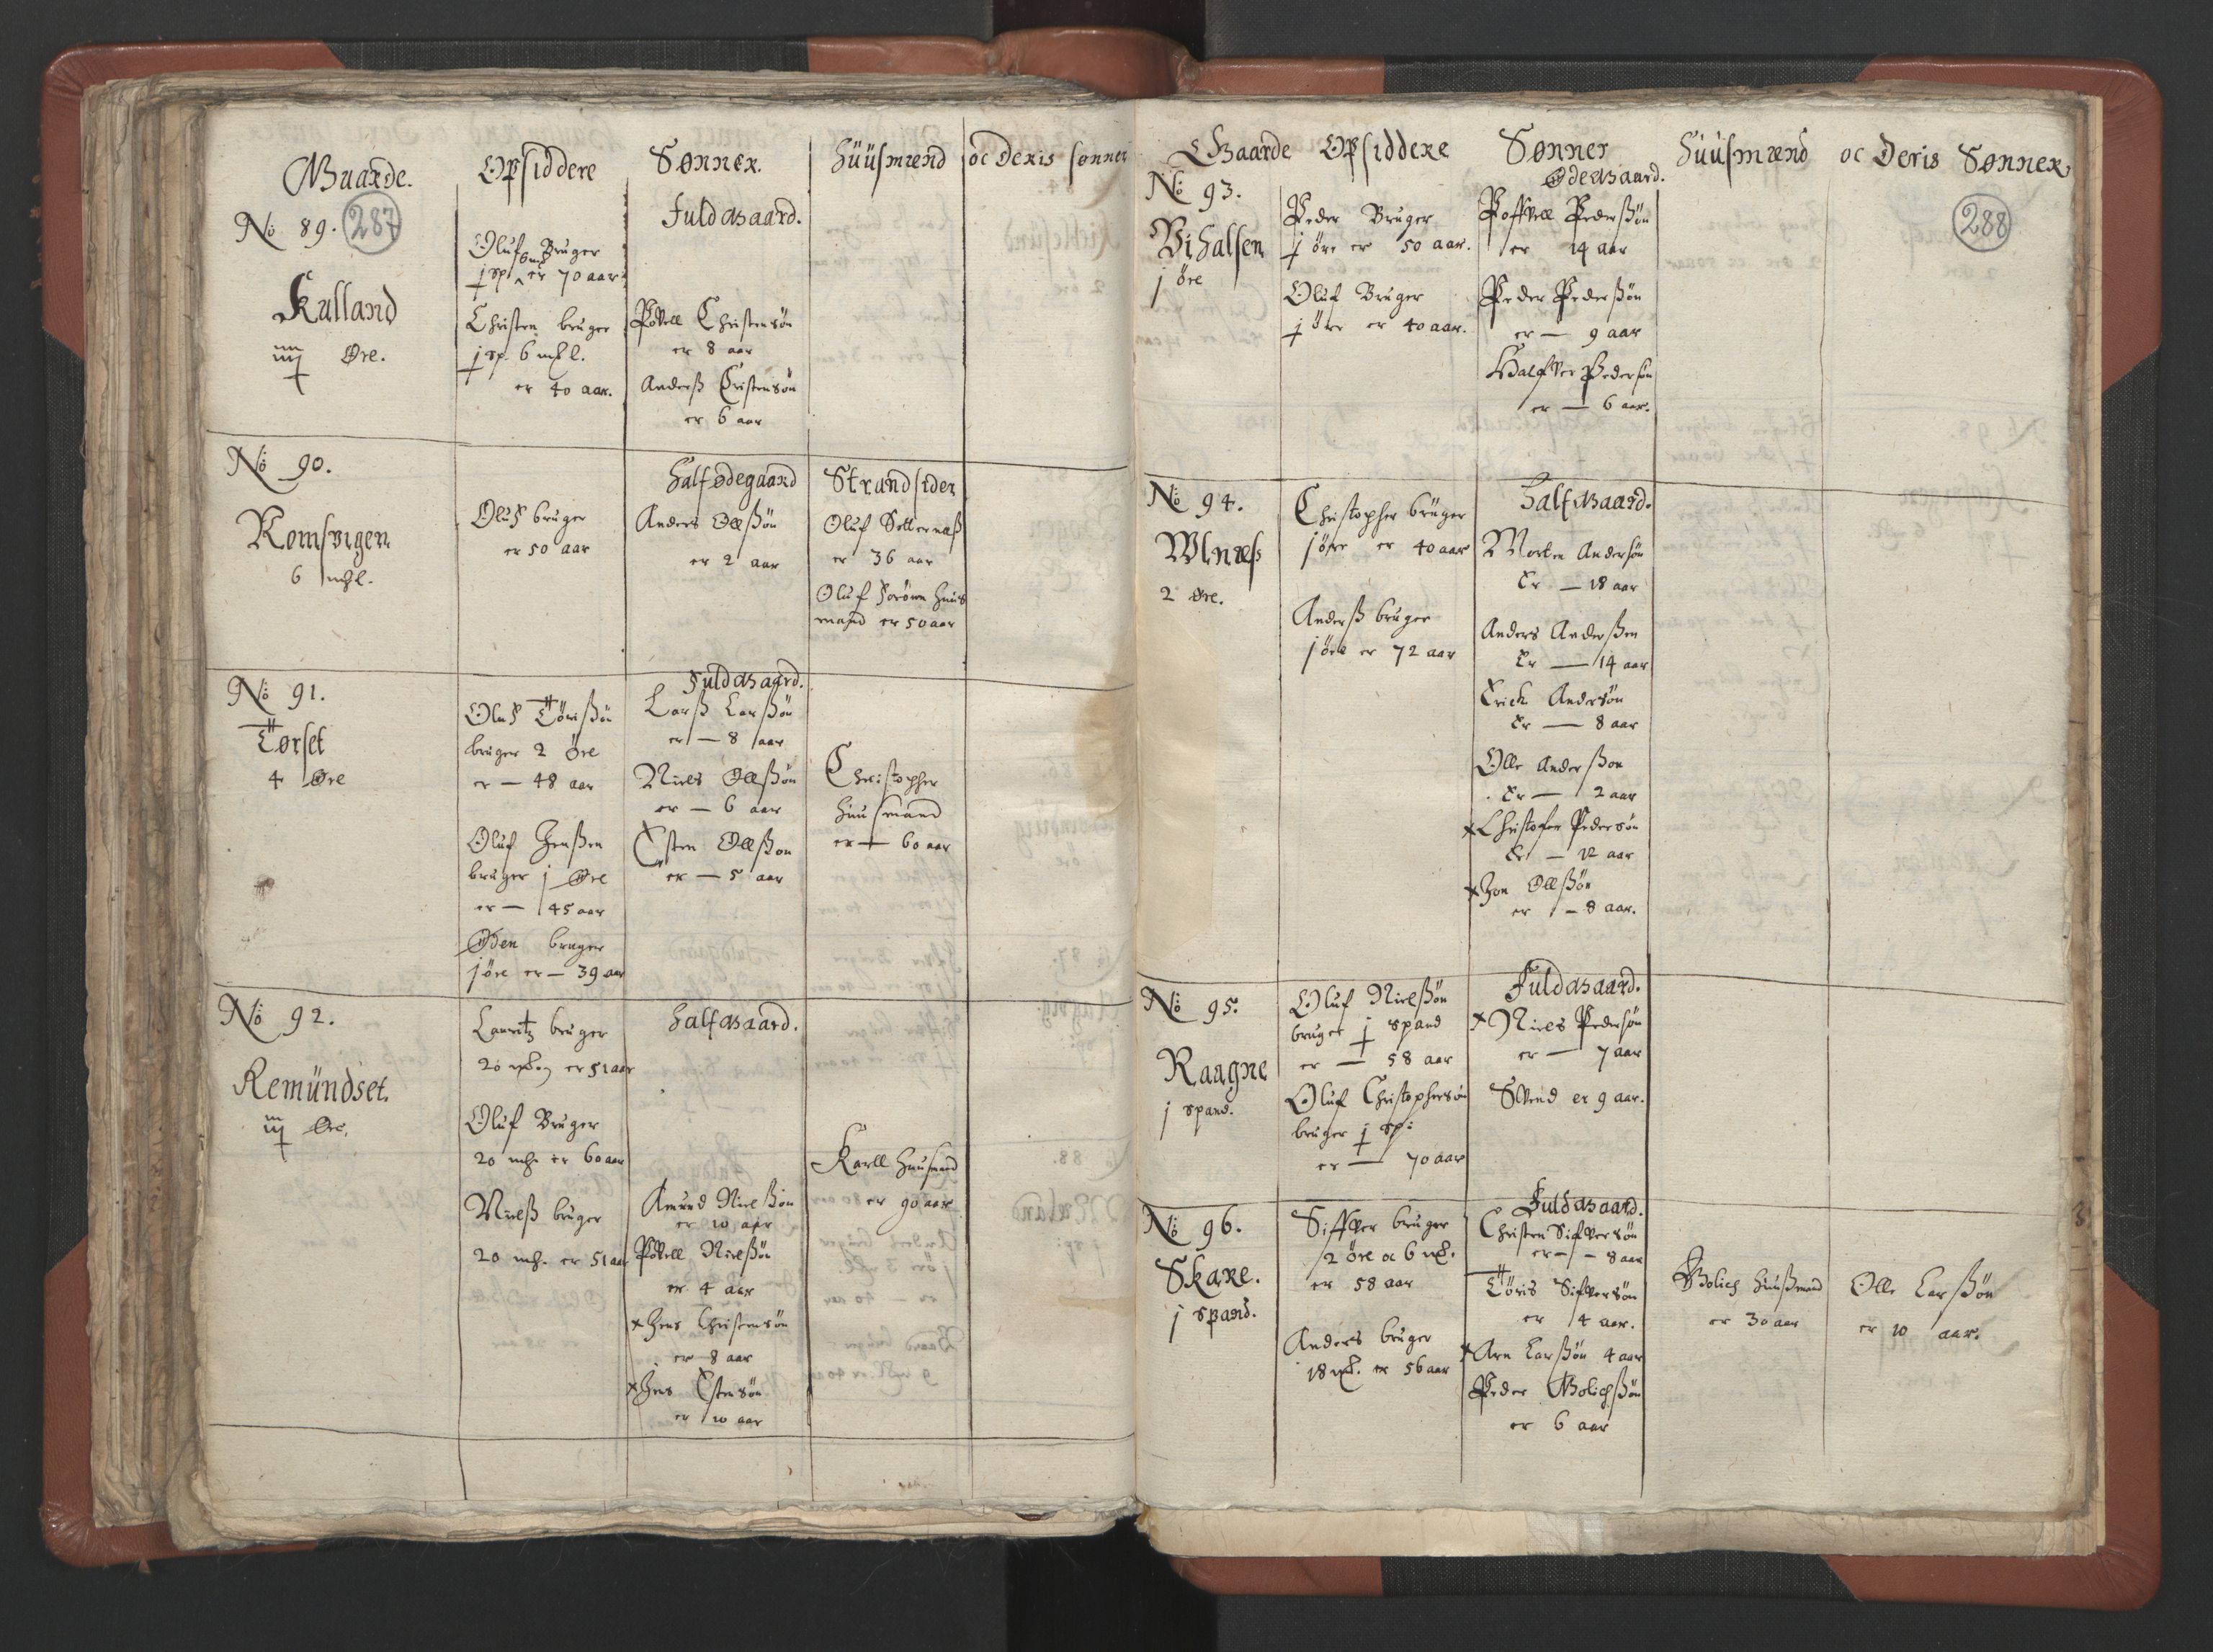 Gaarde. Opsiddere Sønner. Huusmænd oc Deris sønner
No 89. 287
Fuldgaard.
Kulland
iiij Øre.
Oluf Bruger
j sp. 6 m er 70 aar
Christen bruger
j sp. 6 mkl.
er 40 aar.
Povell Christensøn
er 8 aar
Anderß Cristensøn
er 6 aar
No 90.
Romsvigen
6 mkl.
Oluf bruger
er 50 aar
Half ødegaard
Anders Olßøn
er 2 aar
Strandsider
Oluf
er 36 aar
Oluf huus
mand er 50 aar
No 91.
Tørset
4 Øre
Oluf Törißøn
bruger 2 Øre
er — 48 aar
Oluf Jenßen
bruger j Øre
er — 45 aar
Øden bruger
j öre er — 39 aar
Fuldgaard.
Larß Larßøn
er — 8 aar
Niels Olßøn
er — 6 aar
Esten Olßøn
er — 5 aar
Christopher
huusmand
er — 60 aar
No 92.
Remundset.
iij Øre.
Lauritz bruger
20 mk. er 51 aar
Oluf Bruger
20 mk. er 60 aar
Nielß bruger
20 mk. er 51 aar
Half Gaard.
Amund Nielßøn
er 10 aar
Povell Nielßøn
er 4 aar
× Jens Christensøn
er 8 aar
× Jens Estensøn
er 10 aar
Karll huusmand
er 90 aar
Gaarde Opsiddere Sønner Huusmænd oc Deris Sønner
288
No 93.
Vihalsen
j öre
Peder Bruger
j öre er 50 aar.
Oluf Bruger
j öre er 40 aar.
Ødegaard.
Poffvell Pederßøn
er 14 aar
Peder Pederßøn
er — 9 aar
Halfver Pedersøn
er — 6 aar.
No 94.
Ulnæs
2 øre.
Christopher brüger
j öre er 40 aar
Anderß bruger
j öre er 72 aar
Half Gaard.
Morten Andersøn
Er — 18 aar
Anders Anderßen
Er — 14 aar
Erick Andersøn
Er — 8 aar
Olle Anderßøn
Er — 2 aar
× Christofer Pedersøn
Er — 12 aar
× Jon Olßøn
er — 8 aar.
No 95.
Raagne
j spand.
Oluf Nielßøn
bruger j spand
er — 58 aar
Oluf Christophersøn
bruger j sp:
er — 70 aar
Fuldgaard.
× Niels Pedersøn
er — 7 aar
Svend er 9 aar.
No 96.
Skare.
j spand.
Siffver bruger
2 öre oc 6 mk.
er 58 aar
Anders bruger
18 mk. er 56 aar
Fuldgaard.
Christen Siffversøn
er — 8 aar
Töris Siffversøn
er 4 aar.
× Arn Larßøn 4 aar
Peder Bolichßøn
er 6 aar
Bolich huußmand
er 30 aar
Olle Larßøn
er 10 aar.